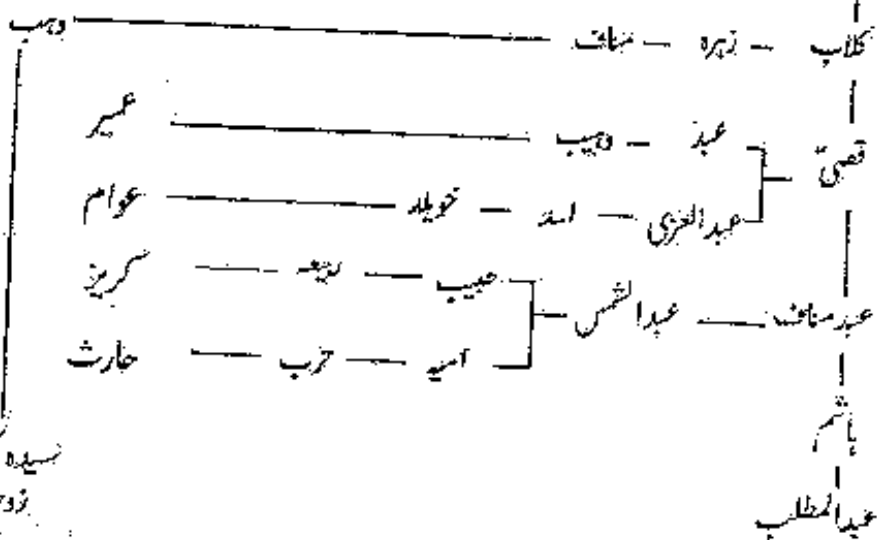 کلاب زہرہ مناف وہب
قصیّ
عبد وہیب عمیر
عبدالعزی اسد خویلد عوام
عبد مناف عبدالشمس
حبیب ربیعہ کریز
امیہ حرب حارث
ہاشم
عبدالمطلب